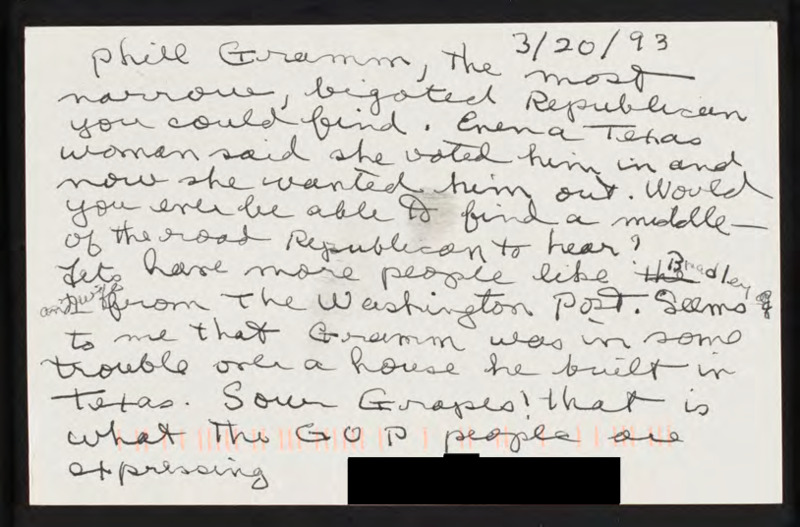 3/20/93
Phill Gramm, the most
narrow, bigoted Republican
you could find. Even a Texas
woman said she voted him in and
now she wanted him out. Would
you ever be able to find a middle-
of the road Republican to hear?
Lets have more people like the Bradley
and wife from the Washington Post. Seems
to me that Gramm was in some
trouble over a house he built in
Texas. Sour Grapes! that is
what the GOP people are
expressing